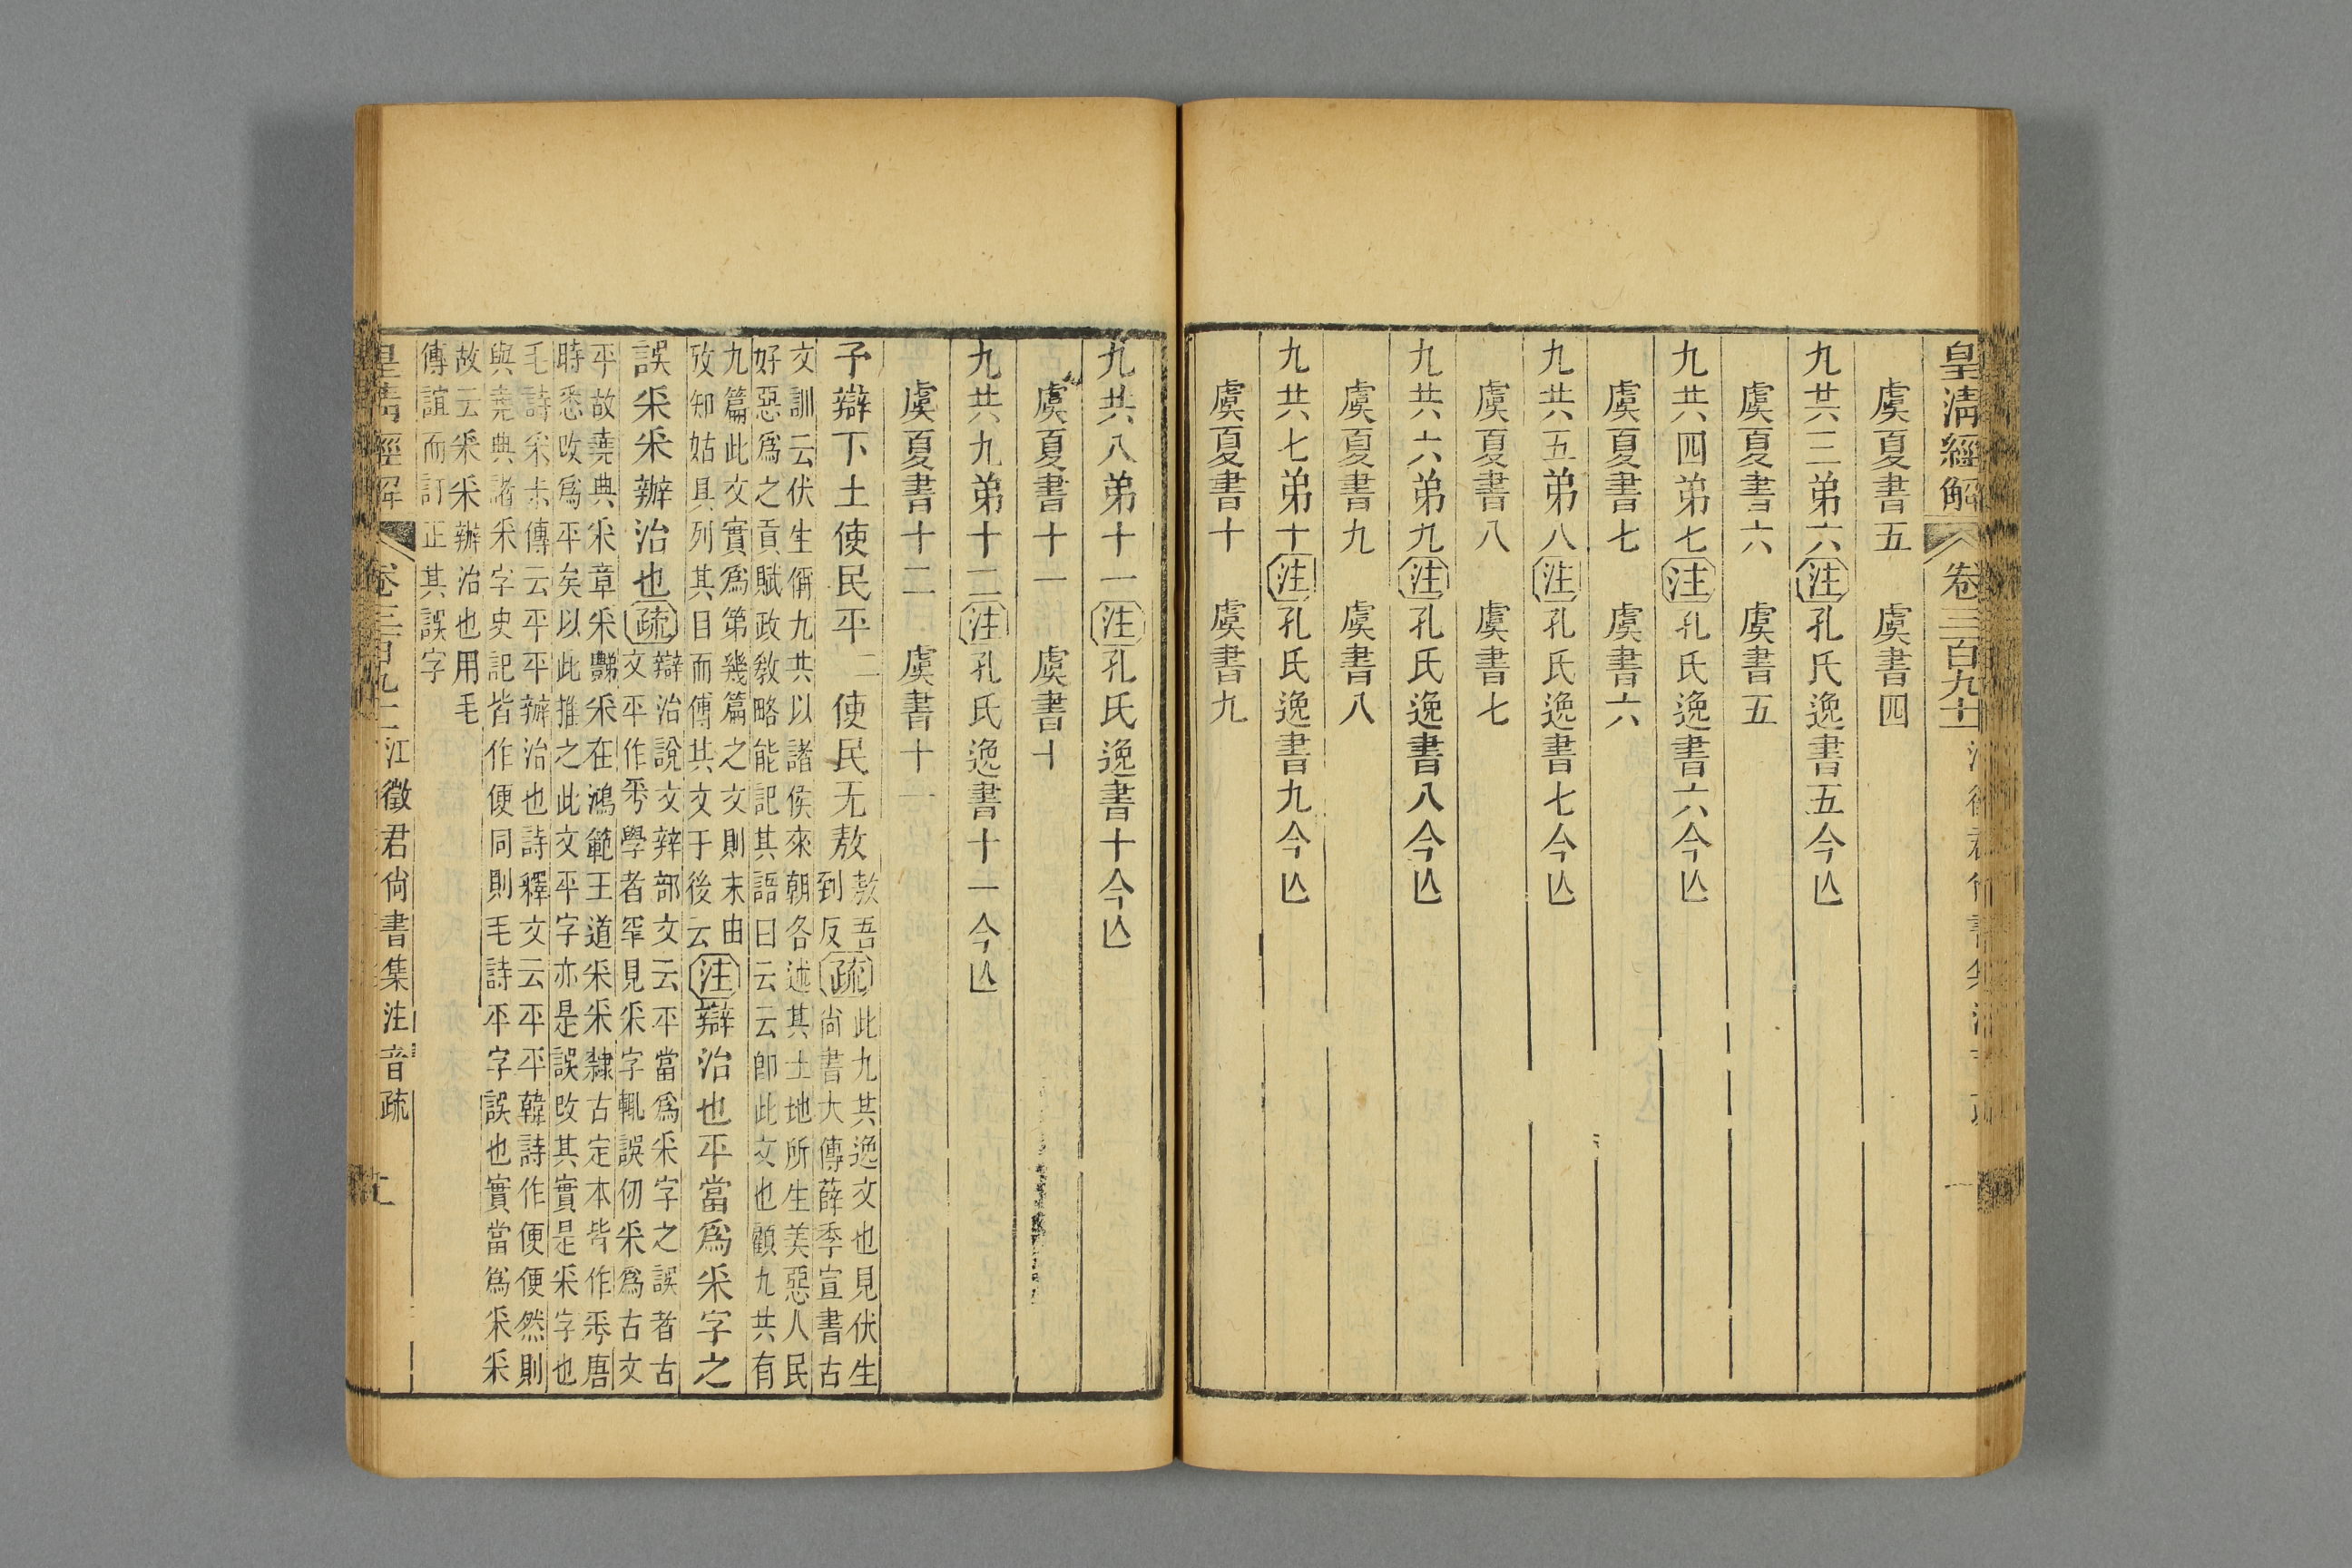 皇清經解 卷三百九十一
虞夏書五 虞書四
九共三弟六注孔氏逸書五今亾
虞夏書六 虞書五
九共四弟七注孔氏逸書六今亾
虞夏書七 虞書六
九共五弟八注孔氏逸書七今亾
虞夏書八 虞書七
九共六弟九注孔氏逸書八今亾
虞夏書九 虞書八
九共七弟十注孔氏逸書九今亾
虞夏書十 虞書九
九共八弟十一注孔氏逸書十今亾
虞夏書十一 虞書十
九共九弟十二注孔氏逸書十一今亾
虞夏書十二 虞書十一
予辯下土使民平二使民无敖
敖吾
到反
疏
此九共逸文也見伏生
尚書大傳薛季宣書古
文訓云伏生偁九共以諸侯來朝各述其土地所生美惡人民
好惡爲之貢賦政敎略能記其語曰云云卽此文也顧九共有
九篇此文實爲第幾篇之文則末由
攷知姑具列其目而傅其文于後云
注辯治也平當爲釆字之
誤釆釆辦治也疏
辯治說文辡部文云平當爲釆字之誤者古
文平作𠀼學者罕見釆字輒誤仞釆爲古文
平故堯典釆章釆豑釆在鴻範王道釆釆隸古定本皆作𠀼唐
時悉改爲平矣以此推之此文平字亦是誤改其實是釆字也
毛詩采尗傳云平平辦治也詩釋文云平平韓詩作便便然則
與堯典諸釆字史記皆作便同則毛詩平字誤也實當爲釆釆
故云釆釆辦治也用毛
傳誼而訂正其誤字
皇清經解 江徵君尚書集注音疏